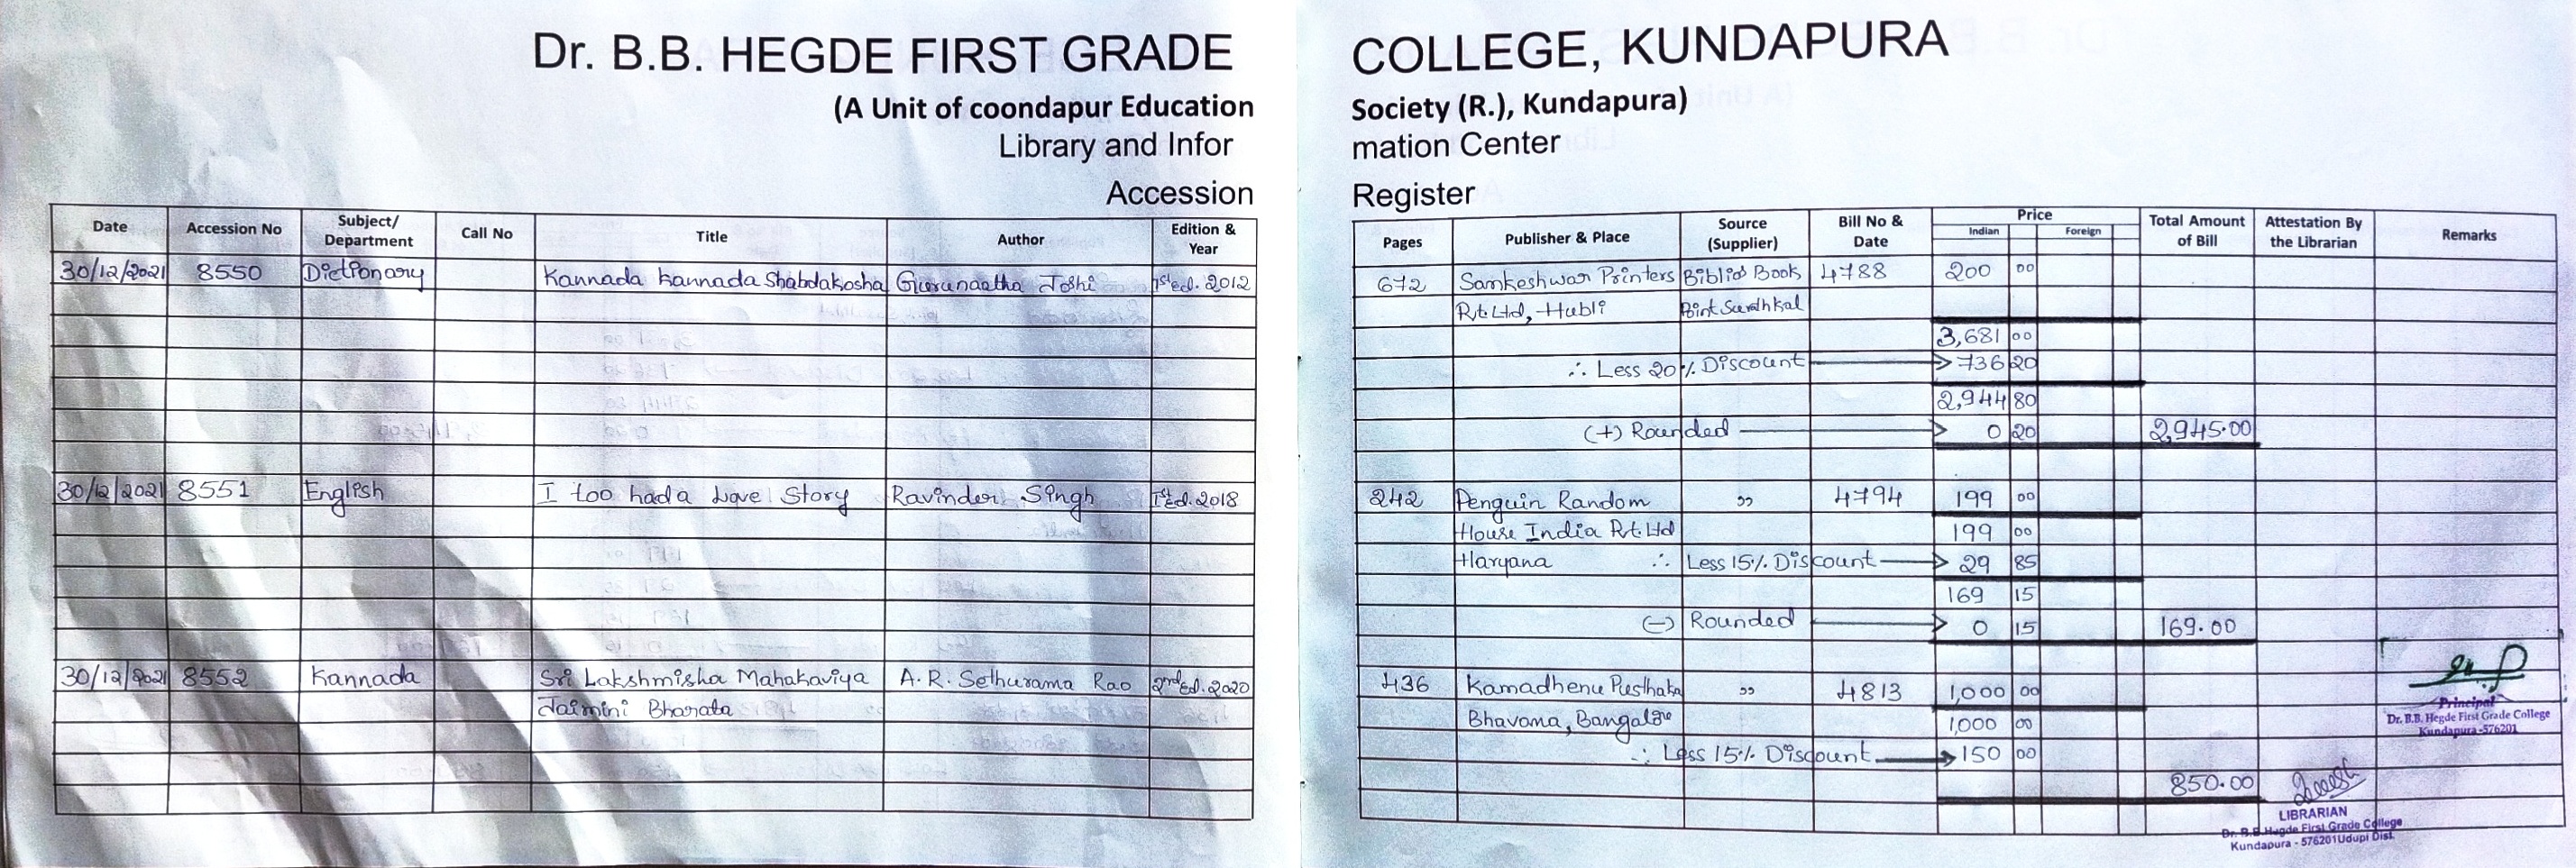 Dr. B.B. HEGDE FIRST GRADE COLLEGE, KUNDAPURA
(A Unit of coondapur Education Society (R.), Kundapura)
Library and Infor mation Center
Accession Register
Date Accession No Subject/ Department Call No Title Author Edition & Year Pages Publisher & Place Source (Supplier) Bill No & Date Price Indian Foreign Total Amount of Bill Attestation By the Librarian Remarks
30/12/2021 8550 Dictionary Kannada Kannada Shabdakosha Gurunaatha Joshi 1st ed. 2012 672 Samkeshwar Printers Biblios Book 4788 200 00
Pvt. Ltd, Hubli Point Surathkal
3,681 00
∴ Less 20% Discount → 736 20
2,944 80
(+) Rounded → 0 20 2,945.00
30/12/2021 8551 English I too had a Love Story Ravinder Singh 1st Ed. 2018 242 Penguin Random ,, 4794 199 00
House India Pvt. Ltd 199 00
Haryana ∴ Less 15% Discount → 29 85
169 15
(-) Rounded → 0 15 169.00
30/12/2021 8552 Kannada Sri Lakshmisha Mahakaviya A. R. Sethurama Rao 2nd Ed. 2020 436 Kamadhenu Pusthaka ,, 4813 1,000 00
Jaimini Bharata Bhavana, Bangalore 1,000 00
∴ Less 15% Discount → 150 00
850.00
Principal
Dr. B.B. Hegde First Grade College
Kundapura -576201
LIBRARIAN
Dr. B.B.Hegde First Grade College
Kundapura - 576201 Udupi Dist.